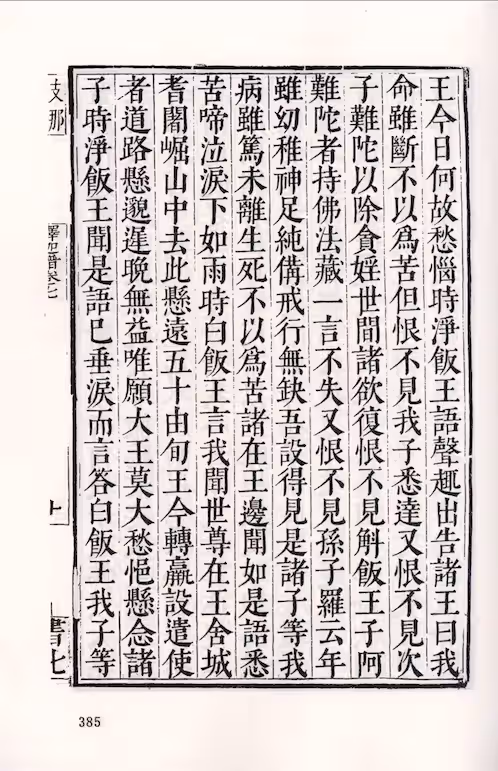 王今日何故愁惱時淨飯王語聲趣出告諸王曰我
命雖斷不以爲苦但恨不見我子悉達又恨不見次
子難陀以除貪婬世間諸欲復恨不見斛飯王子阿
難陀者持佛法藏一言不失又恨不見孫子羅云年
雖幼稚神足純備戒行無缺吾設得見是諸子等我
病雖篤未離生死不以爲苦諸在王邊聞如是語悉
苦啼泣淚下如雨時白飯王言我聞世尊在王舍城
耆闍崛山中去此懸遠五十由旬王今轉羸設遣使
者道路懸邈遲晚無益唯願大王莫大愁悒懸念諸
子時淨飯王聞是語已垂淚而言答白飯王我子等
支那
釋迦譜卷七
十
書七
385